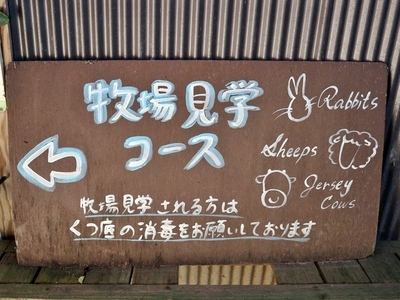 牧場見学
コース
Rabbits
Sheeps
Jersey
Cows
牧場見学される方は
くつ底の消毒をお願いしております